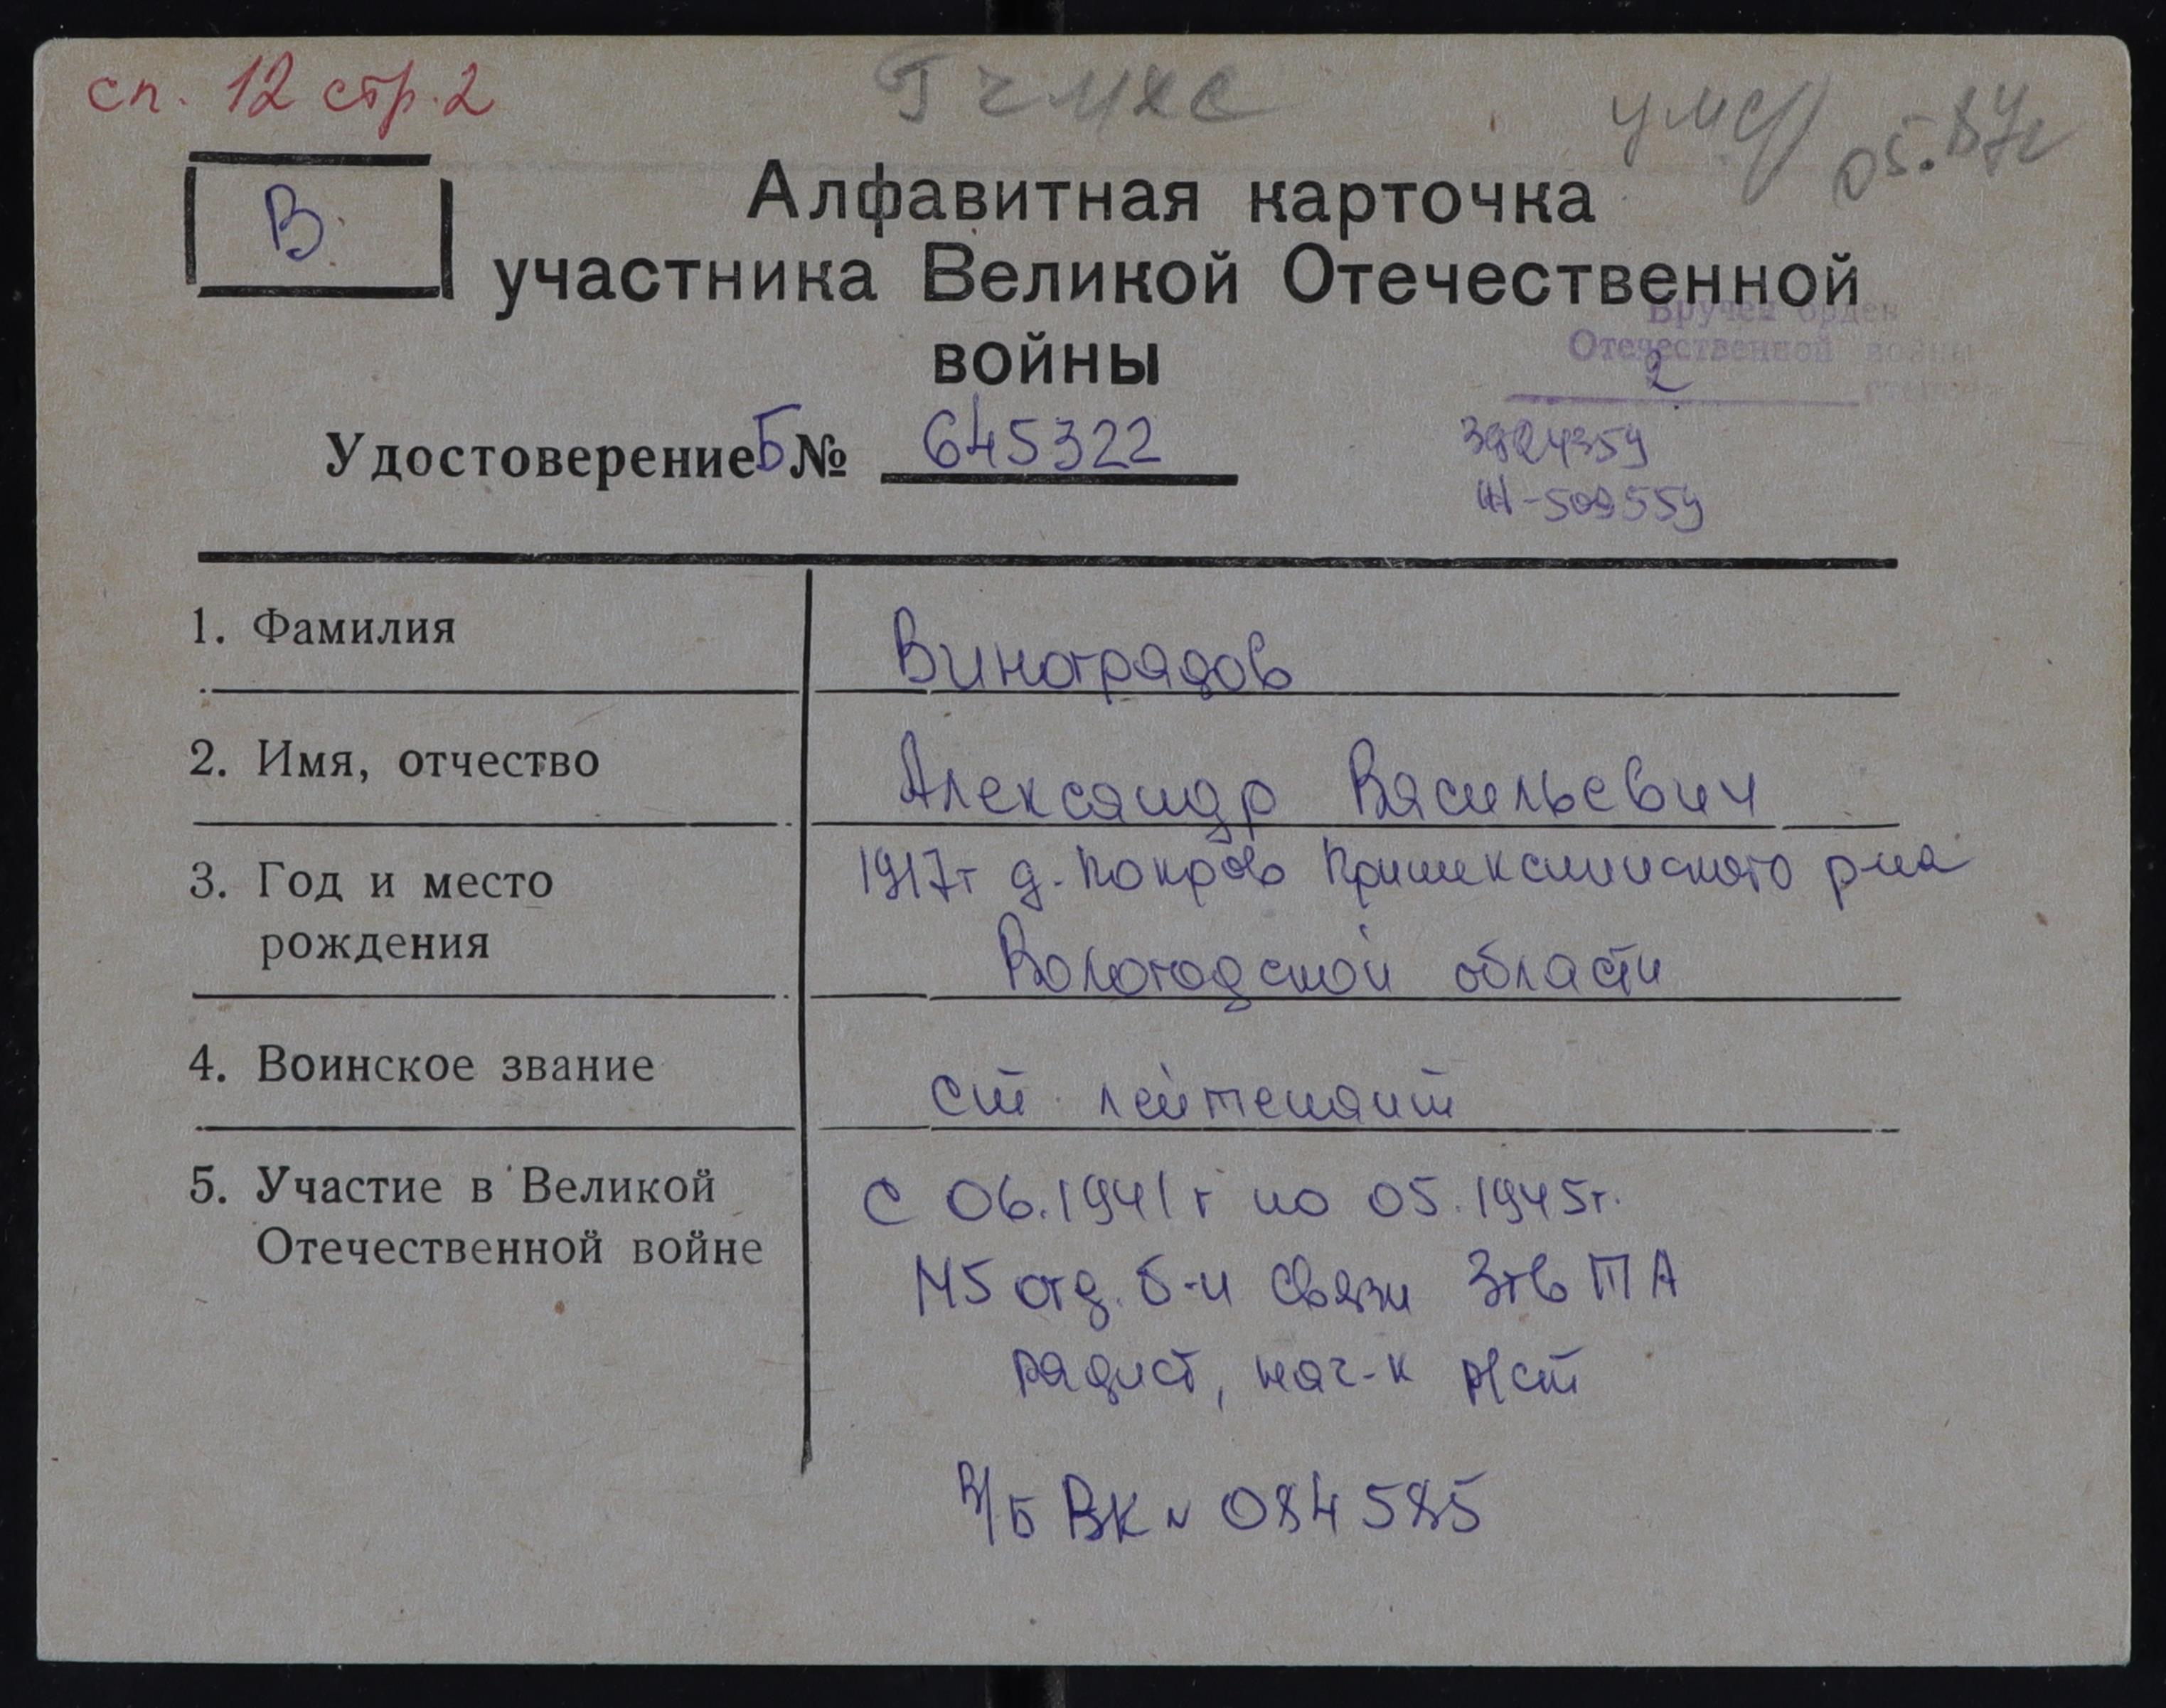 сп. 12 стр. 2
умер 05.87г
В.
Алфавитная карточка
участника Великой Отечественной
войны
Вручен орден
Отечественной войны
2 степени
Удостоверение Б № 645322
3924359
509559
1. Фамилия Виноградов
2. Имя, отчество Александр Васильевич
3. Год и место 1917г д. Покров
рождения Вологодской области
4. Воинское звание ст. лейтенант
5. Участие в Великой с 06.1941г по 05.1945г.
Отечественной войне отд. б-н связи 3гв ТА
радист, нач-к Р/ст
В/б ВК № 084585